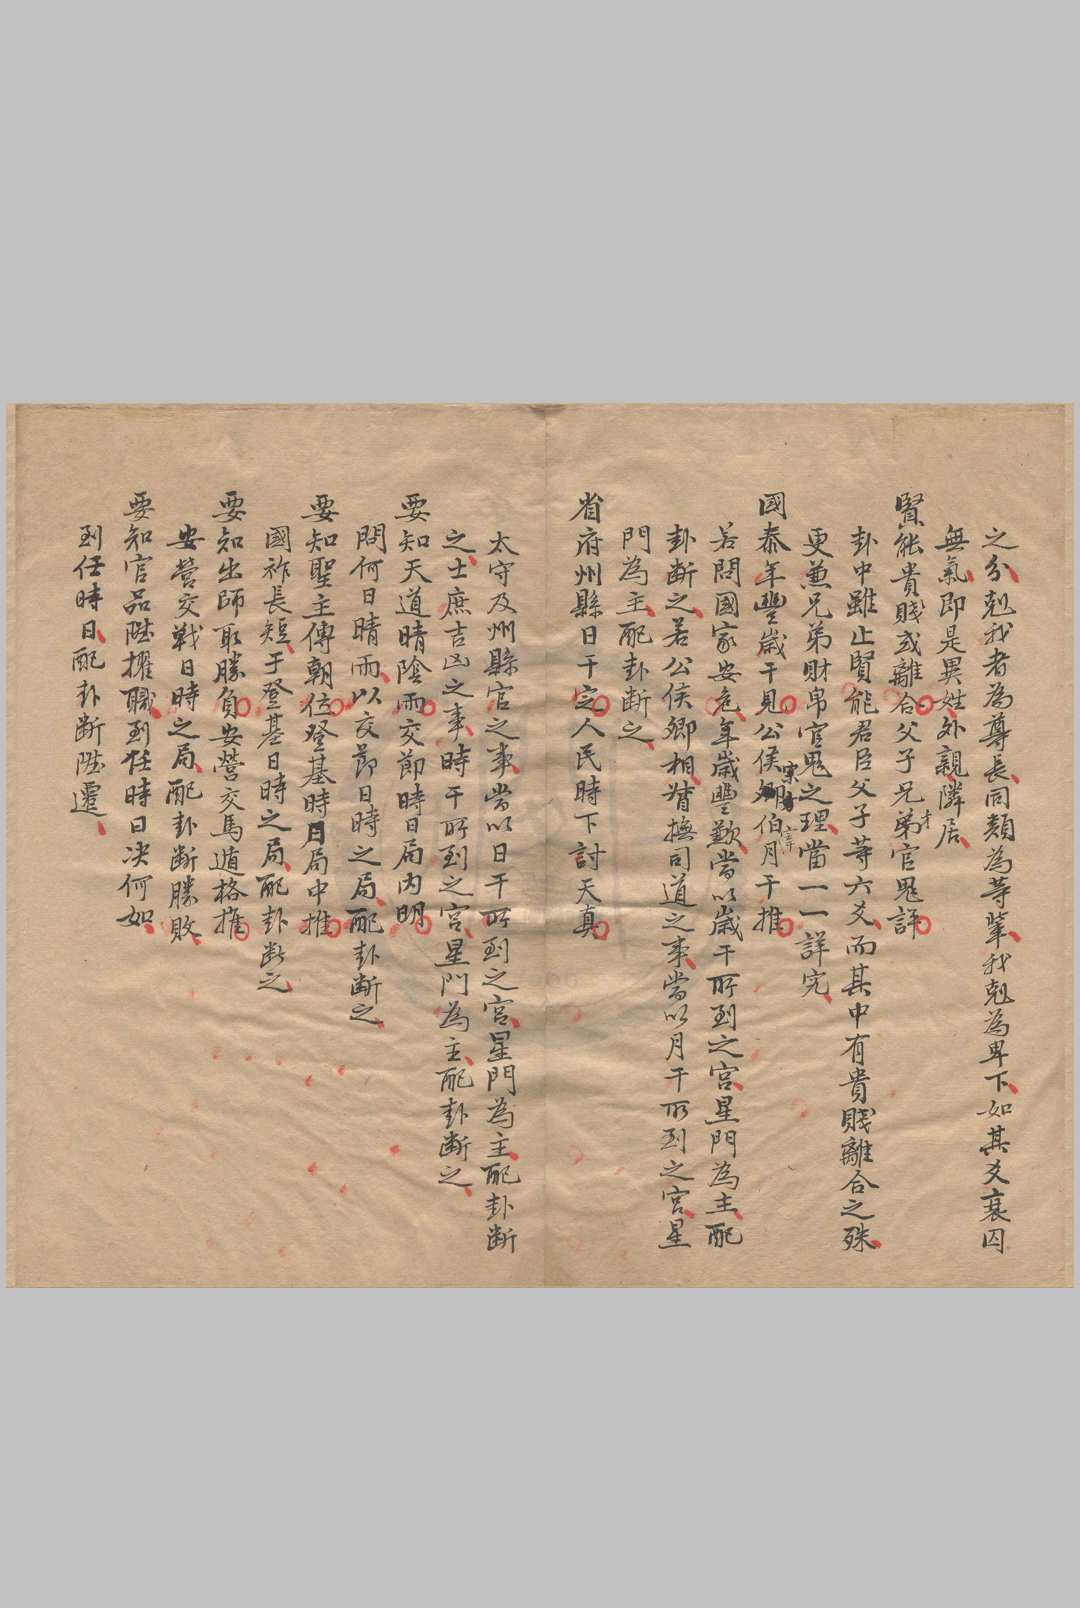 之分剋我者為尊長同類為等輩我剋為卑下如其爻衰囚
無氣即是異姓外親隣居
賢能貴賤或離合父子兄弟才官鬼評
卦中雖止賢能君臣父子等六爻而其中有貴賤離合之殊
更兼兄弟財帛官鬼之理當一一詳究
國泰年豐歲干見公侯伯月干推
若問國家安危年歲豐歉當以歲干所到之宮星門為主配
卦斷之若公侯卿相督撫司道之事當以月干所到之宮星
門為主配卦斷之
省府州縣日干定人民時下討天真
太守及州縣官之事當以日干所到之宮星門為主配卦斷
之士庶吉凶之事時干所到之宮星門為主配卦斷之
要知天道晴陰雨交節時日局內明
問何日晴雨以交節日時之局配卦斷之
要知聖主傳朝位登基時日局中推
國祚長短于登基日時之局配卦断之
要知出師取勝負安營交馬遁格推
安營交戰日時之局配卦斷勝敗
要知官品陞擢職到任時日决何如
到任時日配卦斷陞遷